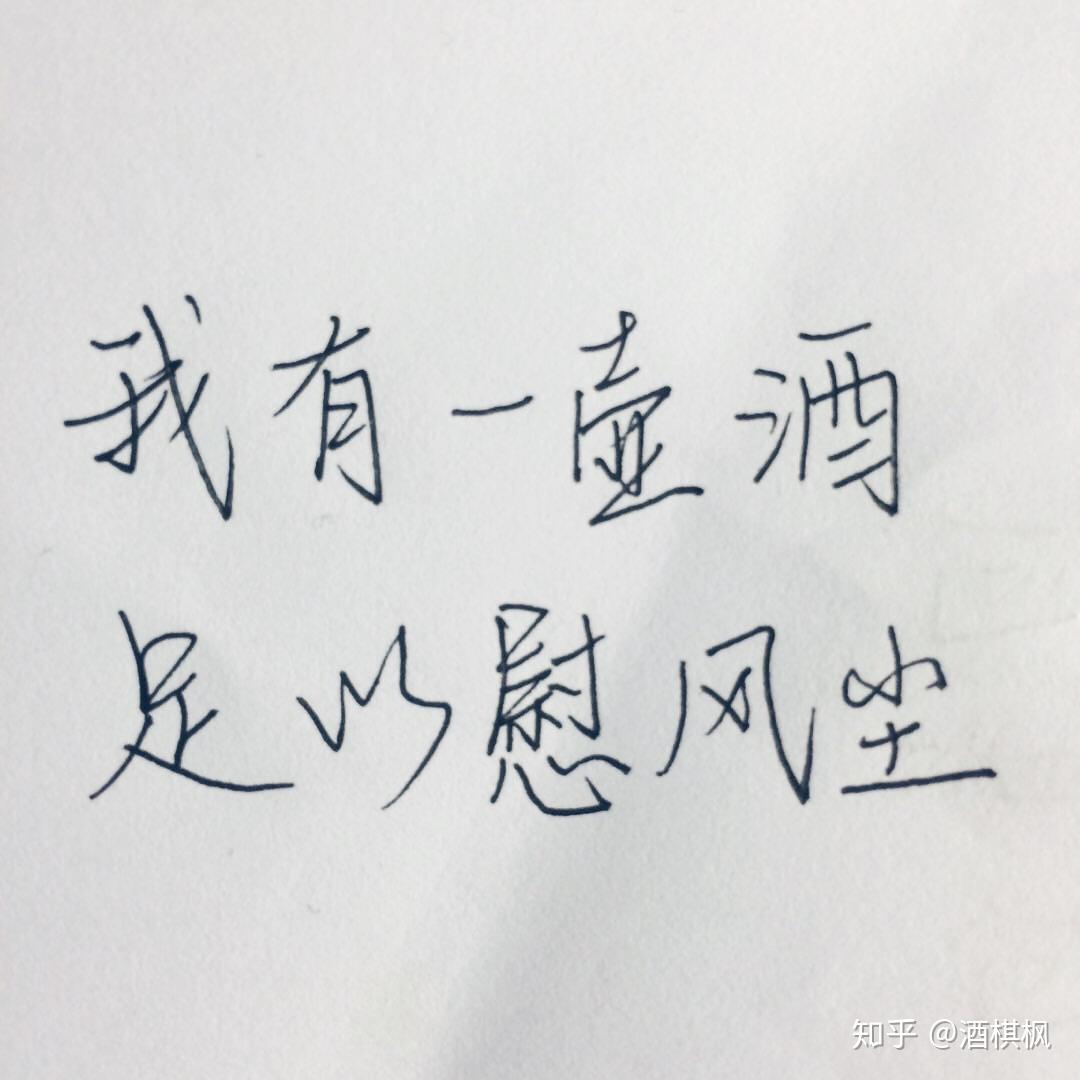 我有一壶酒
足以慰风尘
知乎 @酒棋枫